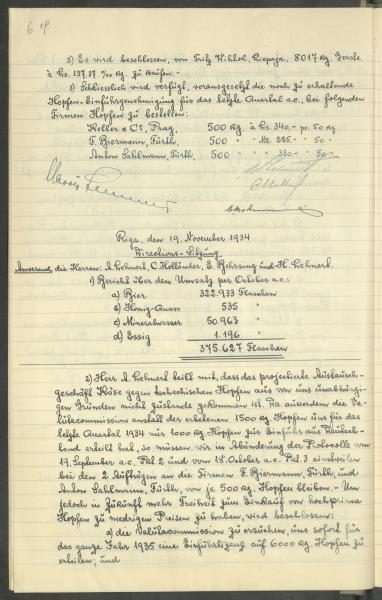 2) Es wird beschlossen, von Fritz Wihtol, Liepaja, 8017 kg. Gerste
à Ls. 137,37 %00 kg. zu kaufen.-
3) Schliesslich wird verfügt, vorausgesetzt die noch zu erhaltende
Hopfen-Einführgenehmigung für das letzte Quartal a.c., bei folgenden
Firmen Hopfen zu bestellen:
Keller & Co, Prag, 500 kg. à Ls. 340,- pr. 50 kg
F. Bjermann, Fürth, 500 " " Mk. 285,- " 50 "
Anton Sahlmann, Fürth, 500 " " " 330,- " 50 "
Riga, den 19. November 1934
Directions-Sitzung
Anwesend die Herren: A. Lohnert, C. Holländer, E. Behrsing und H. Lehnert.
1) Bericht über den Umsatz per October a.c.:
a) Bier 322.933 Flaschen
b) Honig-Quass 535 "
c) Mineralwasser 50.963 "
d) Essig 1.196 "
375.627 Flaschen
2) Herr A. Lehnert teilt mit, dass das projectierte Austausch-
geschäft Käse gegen tschechischen Hopfen aus von uns unabhängi-
gen Gründen nicht zustande gekommen ist. Da ausserdem die Va-
lutacommission anstatt der erbetenen 1500 kg Hopfen uns für das
letzte Quartal 1934 nur 1000 kg Hopfen zur Einfuhr aus Deutsch-
land erteilt hat, so müssen wir in Abänderung der Protocolle vom
19. September a.c. Pkt. 2 und vom 18. October a.c. Pkt. 3 einstweilen
bei den 2 Aufträgen an die Firmen F. Bjermann, Fürth, und
Anton Sahlmann, Fürth, von je 500 kg. Hopfen bleiben.- Um
jedoch in Zukunft mehr Freiheit zum Einkauf von hochprima
Hopfen zu niedrigen Preisen zu haben, wird beschlossen:
a) die Valutacommission zu ersuchen, uns sofort für
das ganze Jahr 1935 eine Einfuhrlizenz auf 6000 kg Hopfen zu
erteilen; und